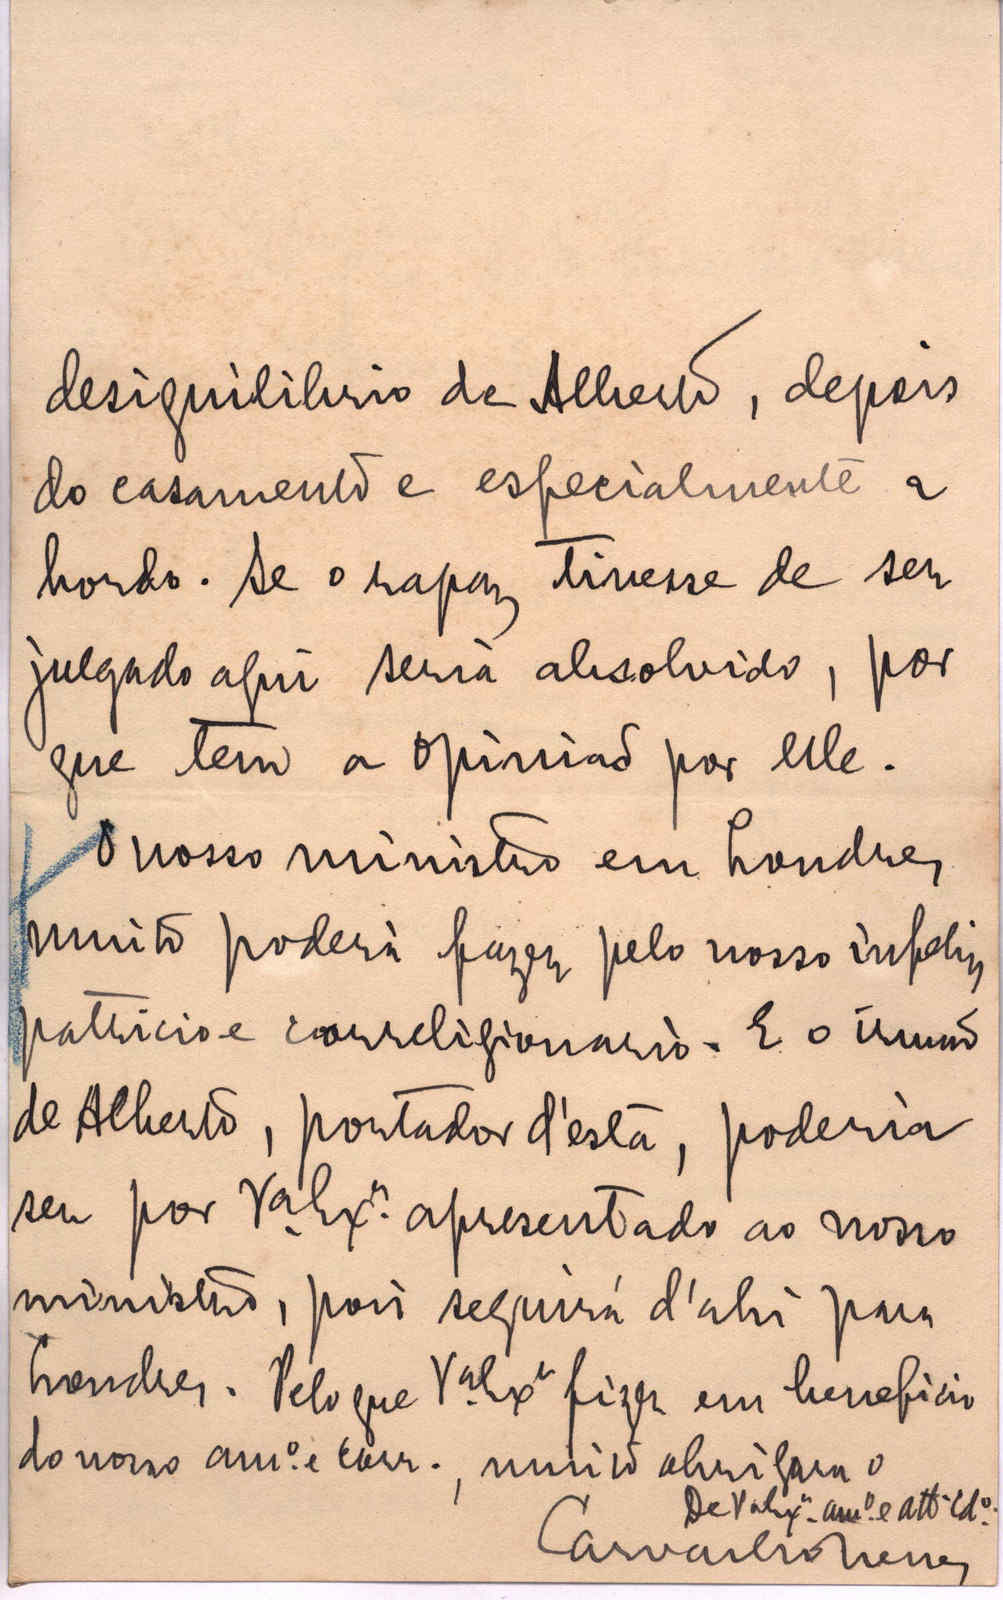 desiquilibrio de Alberto, depois
do casamento e especialmente a
bordo. Se o rapaz tivesse de ser
julgado aqui seria absolvido, por
que tem a opinião por elle.
O nosso ministro em Londres,
muito poderá fazer pelo nosso infeliz
patricio e correligionario. E o irmão
de Alberto, portador d'esta, poderia
ser por Vª. Exª. apresentado ao nosso
ministro, pois seguirá d'ahi para
Londres. Pelo que Vª. Exª fizer em beneficio
do nosso amº. e corr., muito obrigara o
De Vª Exª. amº. e attº
Carvalho Neves